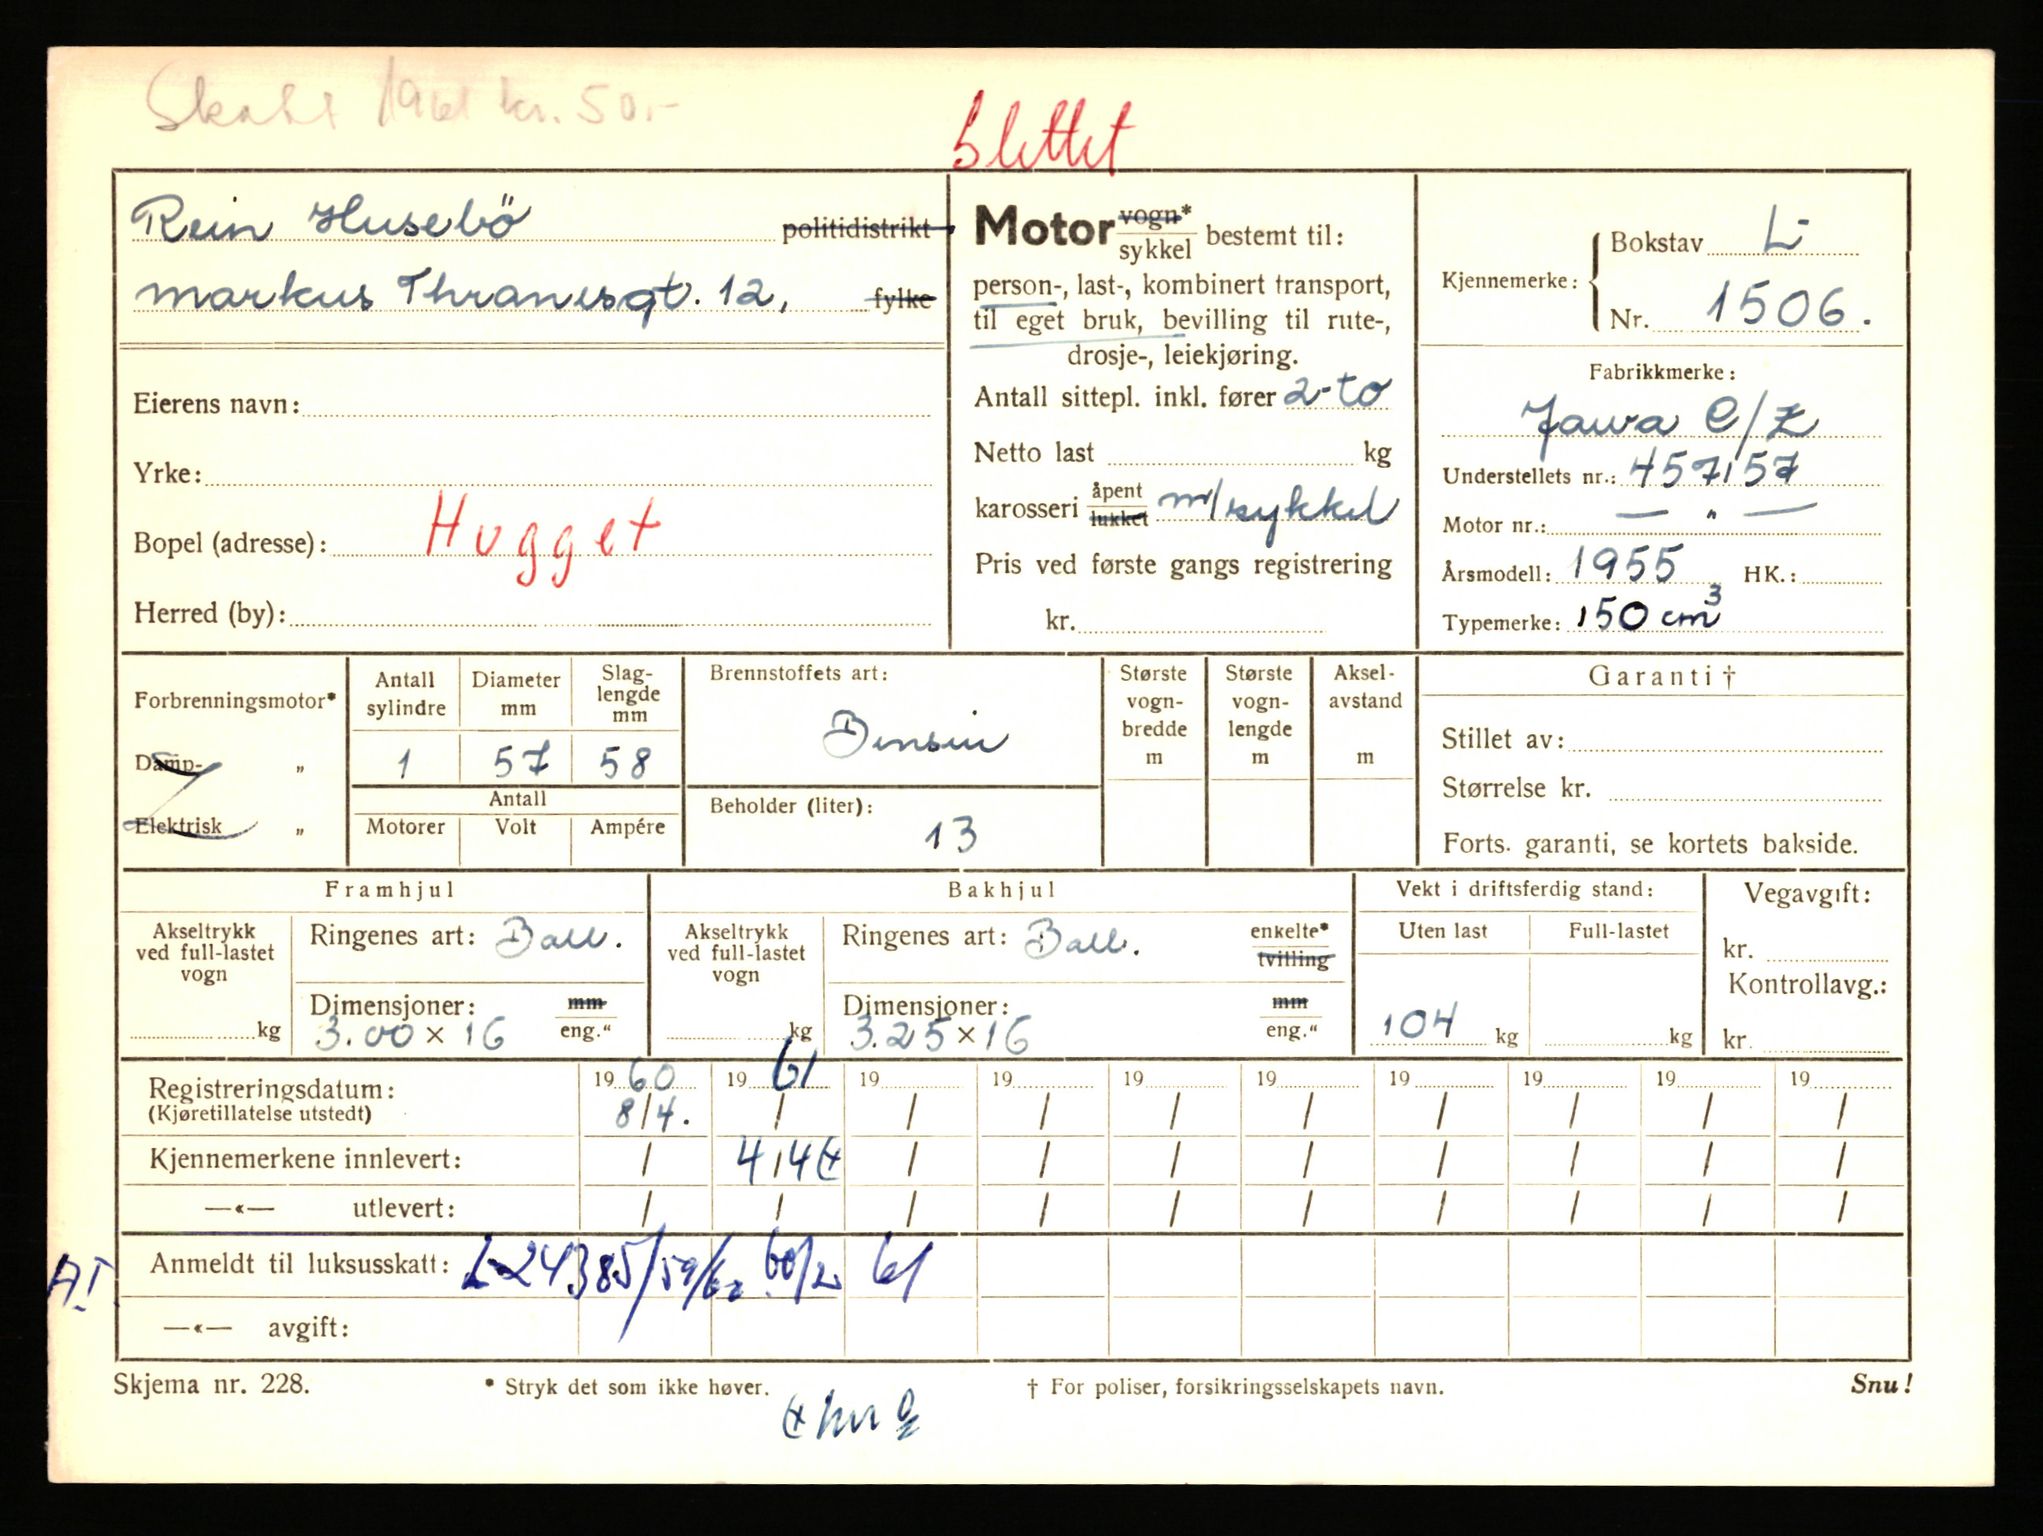 Skatt 1961 kr. 50.-
Slettet
Rein Husebö politidistrikt
Markus Thranesgt. 12, fylke
Eierens navn:
Yrke:
Bopel (adresse): Hugget
Herred (by):
Motor vogn* sykkel bestemt til:
person-, last-, kombinert transport,
til eget bruk, bevilling til rute-,
drosje-, leiekjøring.
Antall sittepl. inkl. fører 2-to
Netto last kg
karosseri åpent lukket m/sykkel
Pris ved første gangs registrering
kr.
Kjennemerke: Bokstav L-
Nr. 1506.
Fabrikkmerke:
Jawa C/Z
Understellets nr.: 457157
Motor nr.: — " —
Årsmodell: 1955 HK.:
Typemerke: 150 cm³
Forbrenningsmotor*
Damp- „
Elektrisk „
Antall sylindre
1
Diameter mm
57
Slag-lengde mm
58
Antall
Motorer Volt Ampére
Brennstoffets art:
Bensin
Beholder (liter):
13
Største vogn-bredde m
Største vogn-lengde m
Aksel-avstand m
Garanti †
Stillet av:
Størrelse kr.
Forts. garanti, se kortets bakside.
Framhjul
Akseltrykk ved full-lastet vogn
kg
Ringenes art: Ball.
Dimensjoner: mm
3.00 x 16 eng."
Bakhjul
Akseltrykk ved full-lastet vogn
kg
Ringenes art: Ball. enkelte* tvilling
Dimensjoner: mm
3.25 x 16 eng."
Vekt i driftsferdig stand:
Uten last Full-lastet
104 kg kg
Vegavgift:
kr.
Kontrollavg.:
kr.
Registreringsdatum: 1960 1961 19 19 19 19 19 19 19 19
(Kjøretillatelse utstedt) 8/4. / / / / / / / / /
Kjennemerkene innlevert: / 4/4 / / / / / / / /
—«— utlevert: / / / / / / / / / /
Anmeldt til luksusskatt: L-24385/59/ 60/ 61
—«— avgift:
Skjema nr. 228. * Stryk det som ikke høver. † For poliser, forsikringsselskapets navn. Snu!